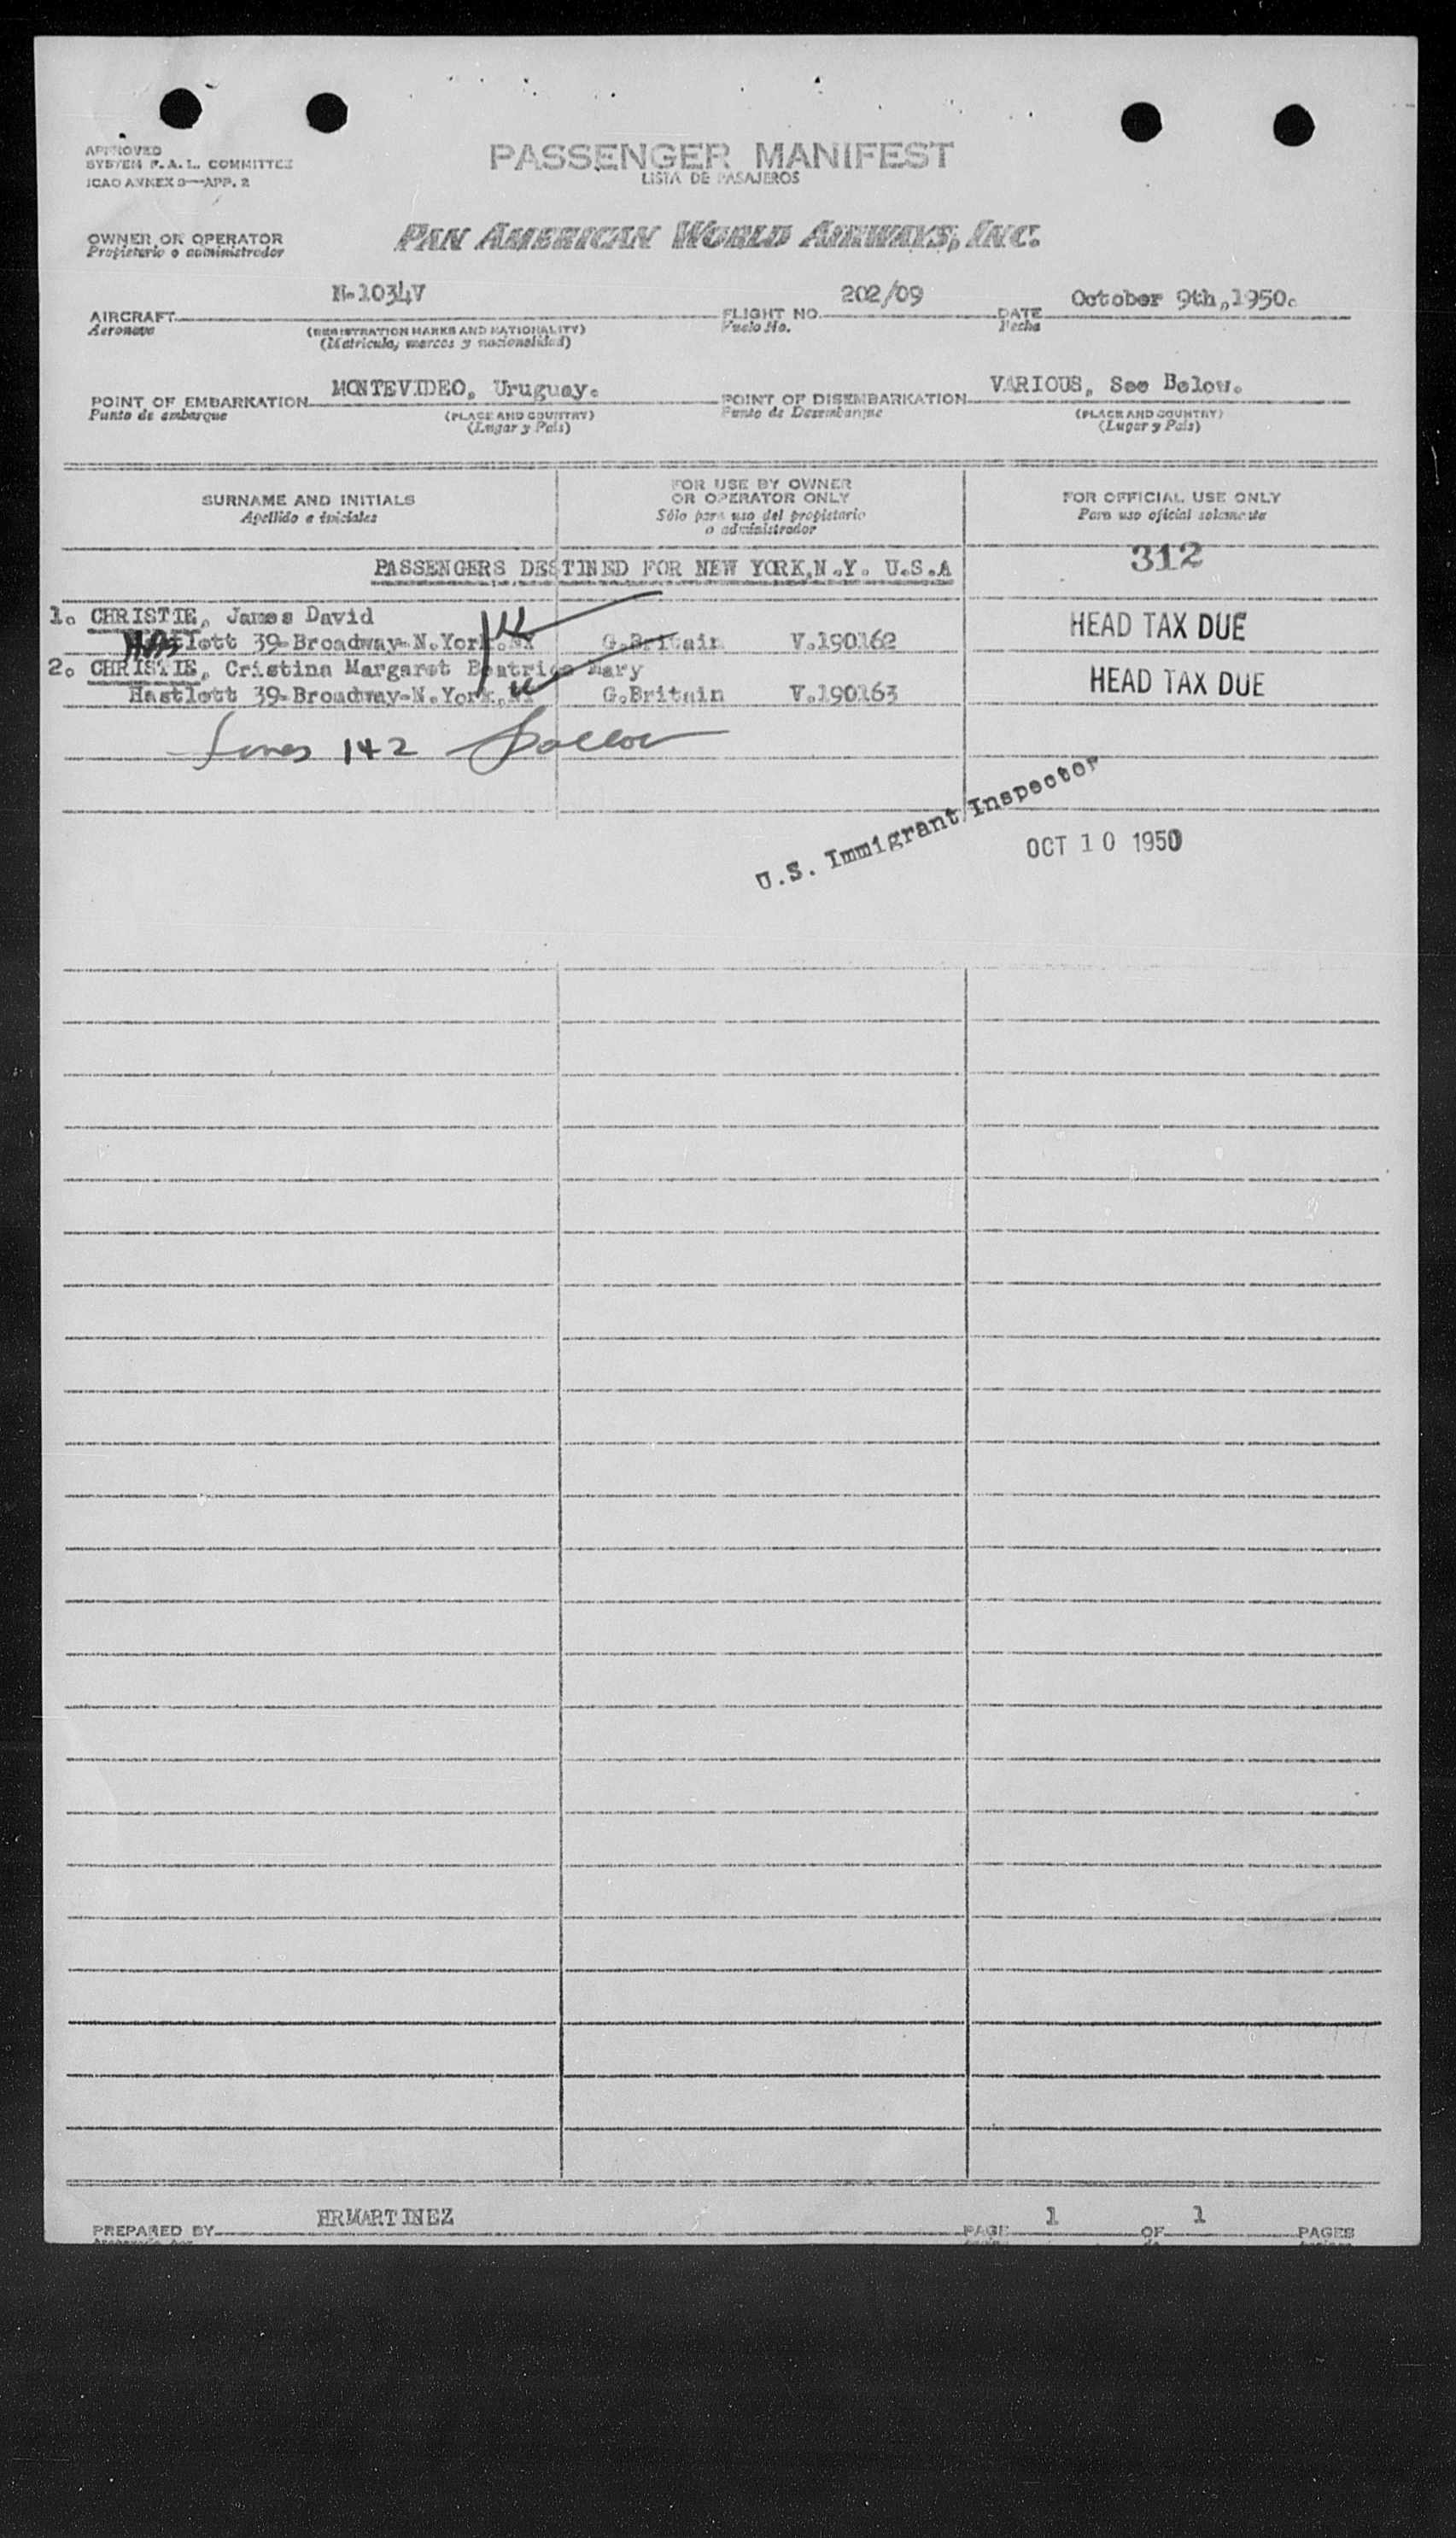 APPROVED
SYSTEM F.A.L. COMMITTEE
ICAO ANNEX 9—APP. 2
PASSENGER MANIFEST
LISTA DE PASAJEROS
OWNER OR OPERATOR
Propietario o administrador
PAN AMERICAN WORLD AIRWAYS, INC.
AIRCRAFT N-1034V FLIGHT NO. 202/09 DATE October 9th,1950.
Aeronave (REGISTRATION MARKS AND NATIONALITY) Vuelo No. Fecha
(Matricula, marcas y nacionalidad)
POINT OF EMBARKATION MONTEVIDEO, Uruguay. POINT OF DISEMBARKATION VARIOUS, See Below.
Punto de embarque (PLACE AND COUNTRY) Punto de Desembarque (PLACE AND COUNTRY)
(Lugar y Pais) (Lugar y Pais)
SURNAME AND INITIALS
Apellido e iniciales
FOR USE BY OWNER
OR OPERATOR ONLY
Sólo para uso del propietario
o administrador
FOR OFFICIAL USE ONLY
Para uso oficial solamente
PASSENGERS DESTINED FOR NEW YORK,N.Y. U.S.A
312
1. CHRISTIE, James David
39-Broadway-N.York.NY G.Britain V.190162 HEAD TAX DUE
2. CHRISTIE, Cristina Margaret Beatrice Mary
Hastlett 39-Broadway-N.York.NY G.Britain V.190163 HEAD TAX DUE
142
U.S. Immigrant Inspector
OCT 10 1950
PREPARED BY HRMARTINEZ PAGE 1 OF 1 PAGES